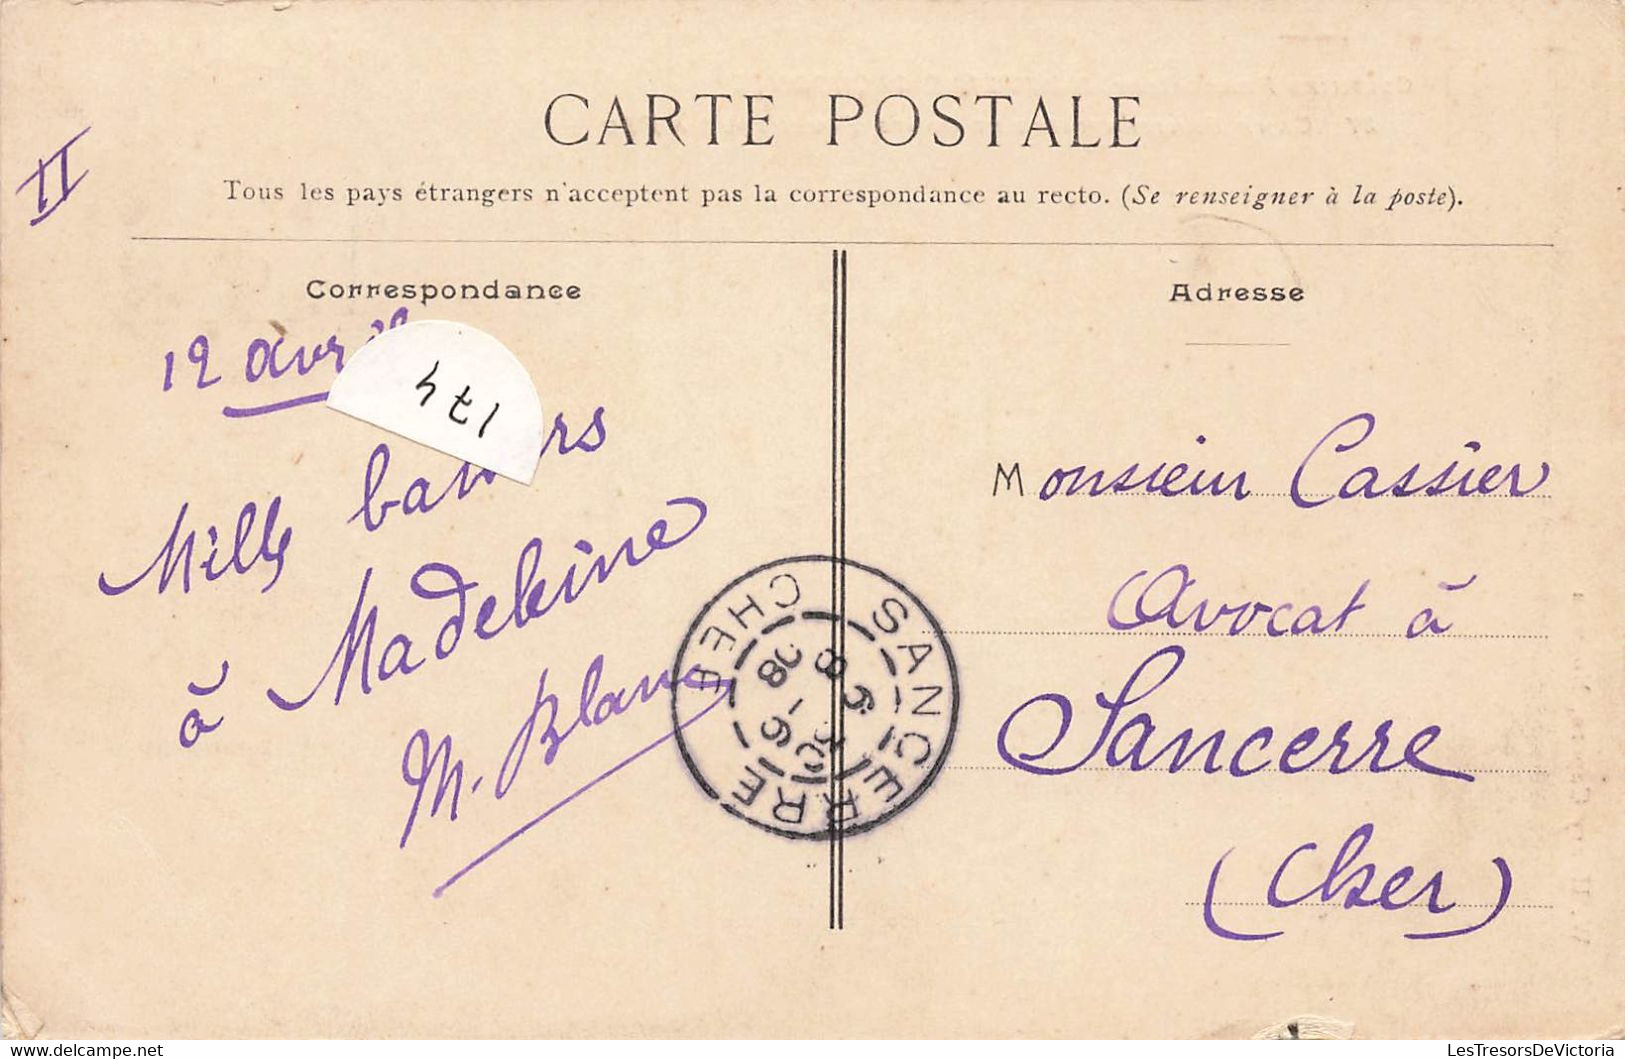 CARTE POSTALE
Tous les pays étrangers n'acceptent pas la correspondance au recto. (Se renseigner à la poste).
II
Correspondance
12 avril
174
Mille
à Madeleine
M. Blanc
Adresse
Monsieur Cassier
Avocat à
Sancerre
(Cher)
SANCERRE CHER
LesTresorsDeVictoria